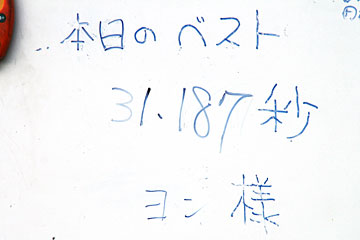 本日のベスト
31.187秒
ヨン様